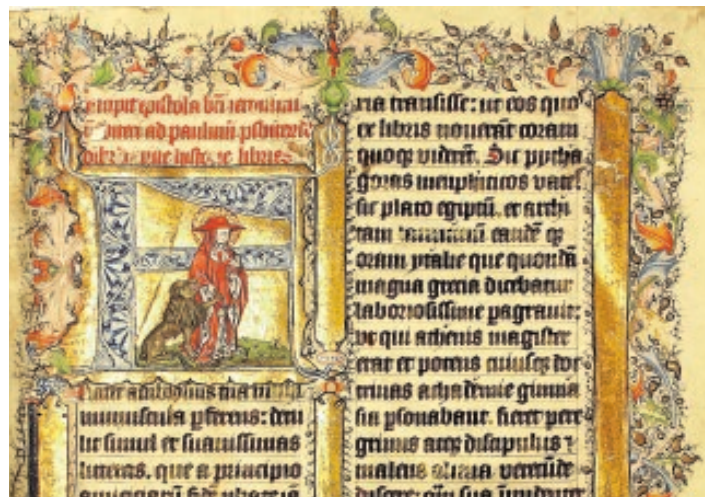 Incipit epistola bti ieronimi
ad paulinū pſbiterū
libris
rater ambroſius tua
munuſcula ꝑferens: detu
lit ſimul et ſuauiſſimas
literas. que a principio
amiciciarū fidē
ria tranſiſſe: ut eos quoſ
ex libris nouerāt coram
quoqꝫ viderēt. Sic pytha
goras memphiticos vateſ
ſic plato egiptū. et archi
tam tarentinū eandē qꝫ
oram ytalie que quondā
magna grecia dicebatur
laborioſiſſime ꝑagrauit:
vt qui athenis magiſter
erat et potens cuiuſqꝫ doc
trinas achademie gimna
ſia ꝑſonabant. fieret pere
grinus atqꝫ diſcipulus ⁊
malens aliena verecūde
diſcere: qͣꝫ ſua